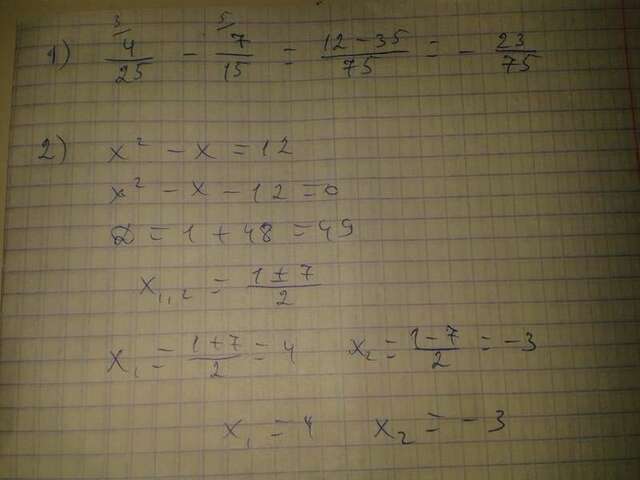 1) 3/ 4/25 - 5/ 7/15 = (12-35)/75 = - 23/75
2) x² - x = 12
x² - x - 12 = 0
D = 1 + 48 = 49
x₁,₂ = (1 ± 7)/2
x₁ = (1+7)/2 = 4 x₂ = (1-7)/2 = -3
x₁ = 4 x₂ = -3